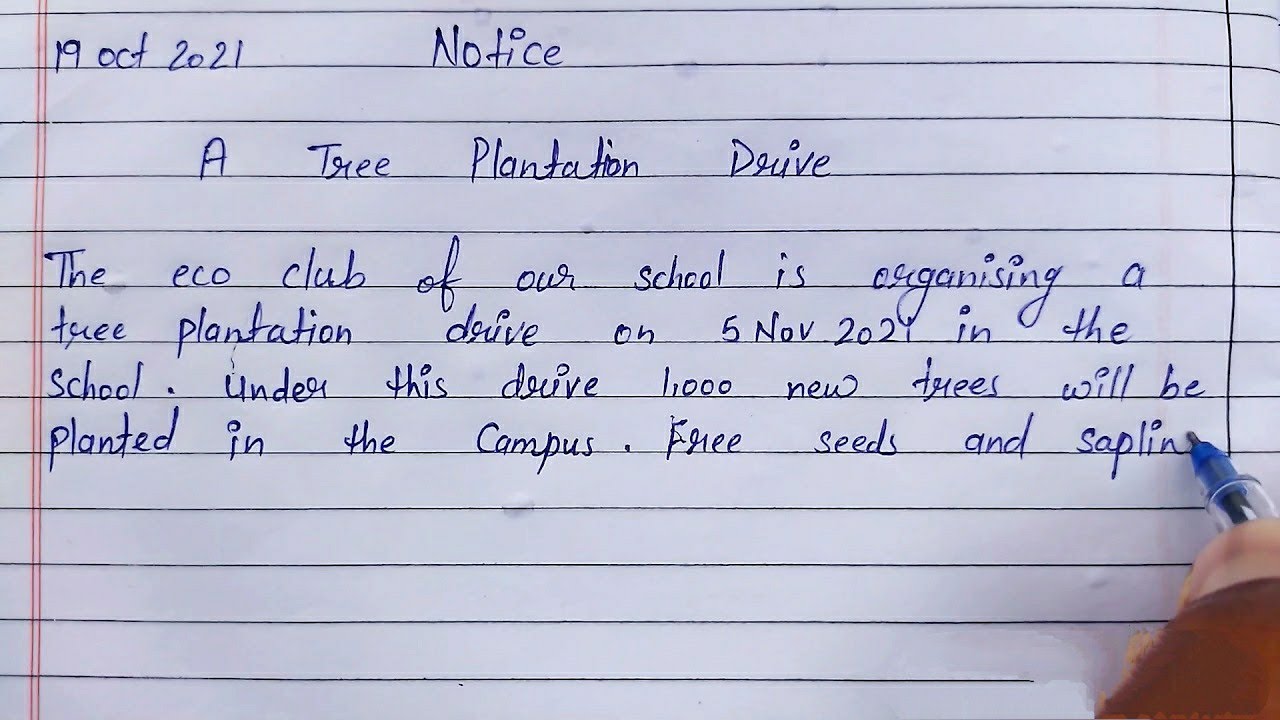 19 oct 2021 Notice
A Tree Plantation Drive
The eco club of our school is organising a
tree plantation drive on 5 Nov 2021 in the
school. Under this drive 1,000 new trees will be
planted in the Campus. Free seeds and saplin